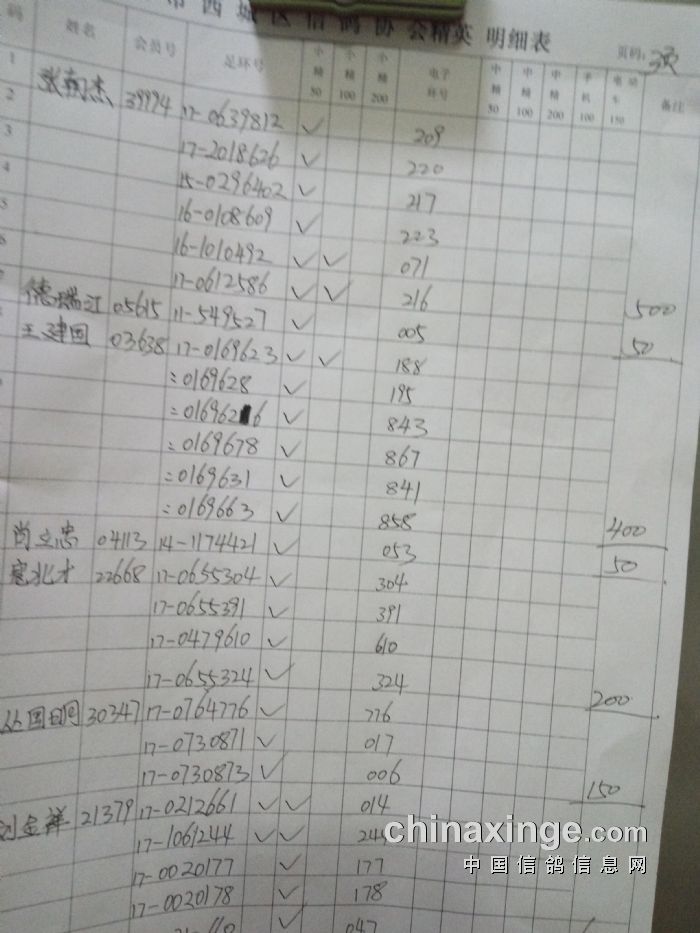 西城区信鸽协会精英 明细表
页码: 3页
码 姓名 会员号 足环号 小精50 小精100 小精200 电子环号 中精50 中精100 中精200 手机100 电动车150 备注
1 39994 17-0639812 ✓ 209
2 17-2018626 ✓ 220
3 15-0296402 ✓ 217
4 16-0108609 ✓ 223
5 16-1010492 ✓ ✓ 071
17-0612586 ✓ ✓ 216 500
德瑞江 05615 11-549527 ✓ 005 50
王建国 03638 17-0169623 ✓ ✓ 188
:0169628 ✓ 195
:0169626 ✓ 843
:0169678 ✓ 867
:0169631 ✓ 841
:0169663 ✓ 858 400
肖立忠 04113 14-1174421 ✓ 053 50
22668 17-0655304 ✓ 304
17-0655391 ✓ 391
17-0479610 ✓ 610
17-0655324 ✓ 324 200
30347 17-0764776 ✓ 776
17-0730871 ✓ 017
17-0730873 ✓ 006 150
刘金祥 21379 17-0212661 ✓ ✓ 014
17-1061244 ✓ ✓
17-0020177 ✓ 177
17-0020178 ✓ 178
✓ 047
chinaxinge.com
中国信鸽信息网